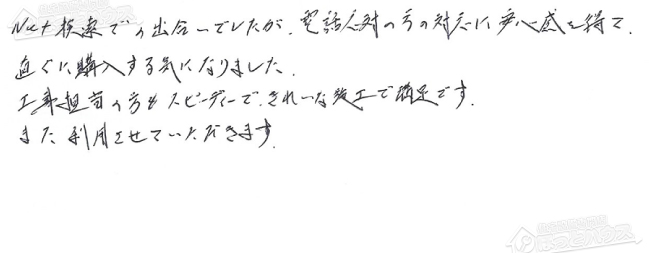 Net検索での出合いでしたが、電話応対の方の対応に安心感を得て、
直ぐに購入する気になりました。
工事担当の方もスピーディーで、きれいな施工で満足です。
また利用させていただきます。